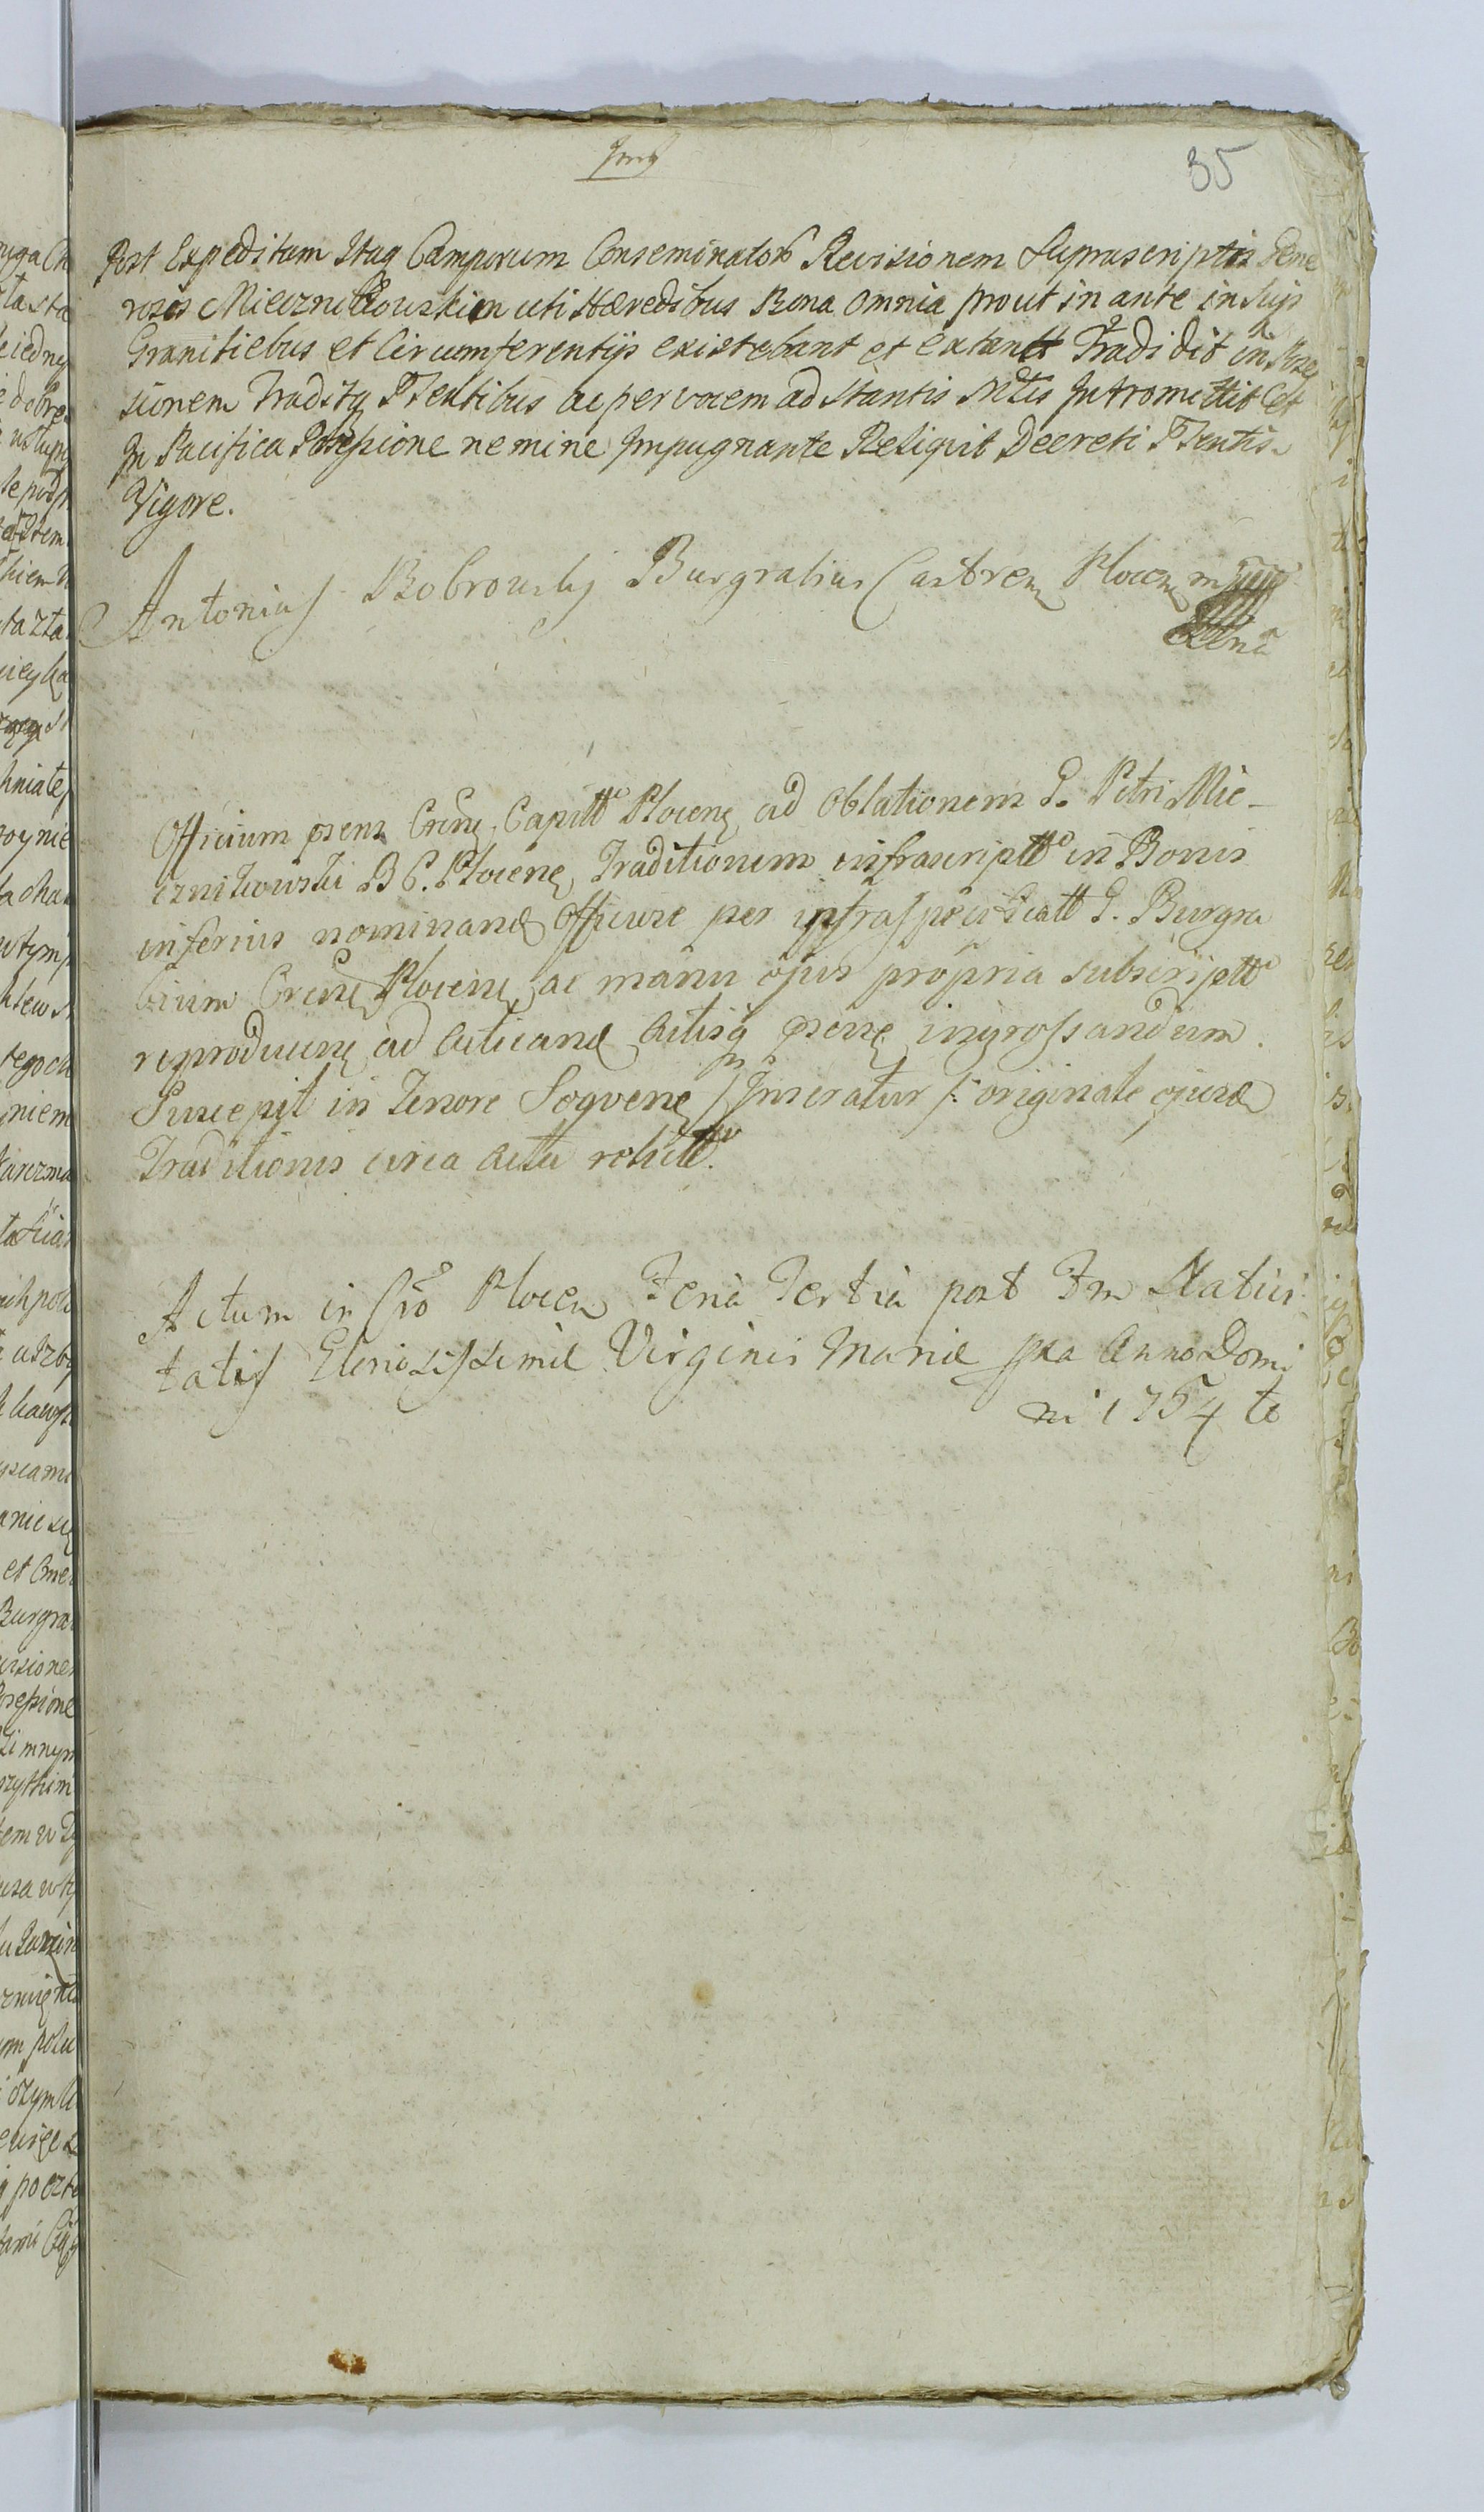 35
Post Expeditam Itaq Camporum Conseminator Revisionem Suprascriptis Gene
rosis Miecznikowskim uti Hæredibus Bona omnia prout in ante in suis
Granitiebus et Circumferentijs existebant et extant Tradidit in Posse
sionem Traditq Ttentibus ac per vocem adstantis Mtis Intromittit et
In Pacifica Possessione nemine Impugnante Reliquit Decreti Ttentis
Vigore.
Antonius Bobrowskj Burgrabius Castren Plocen mpp
Officium psens Crens, Capitt Plocens ad Oblationem G. Petri Mie-
cznikowski B C. Plocens, Traditionem infrascriptt in Bonis
inferius nominand Officiose per infraspecificatt G. Burgra
bium Crens Plocens, ac manu ejus propria subscriptt
reproducens ad Acticand Actisq psens ingrossandum.
Suscepit in Tenore Sequens /: Inseratur :/ originale ejusd
Traditionis circa Acta relictt.
Actum in Cro Plocen Feria Tertia post Fm Nativi
tatis Gloriosissimæ Virginis Mariæ pxa Anno Domi
ni 1754 to